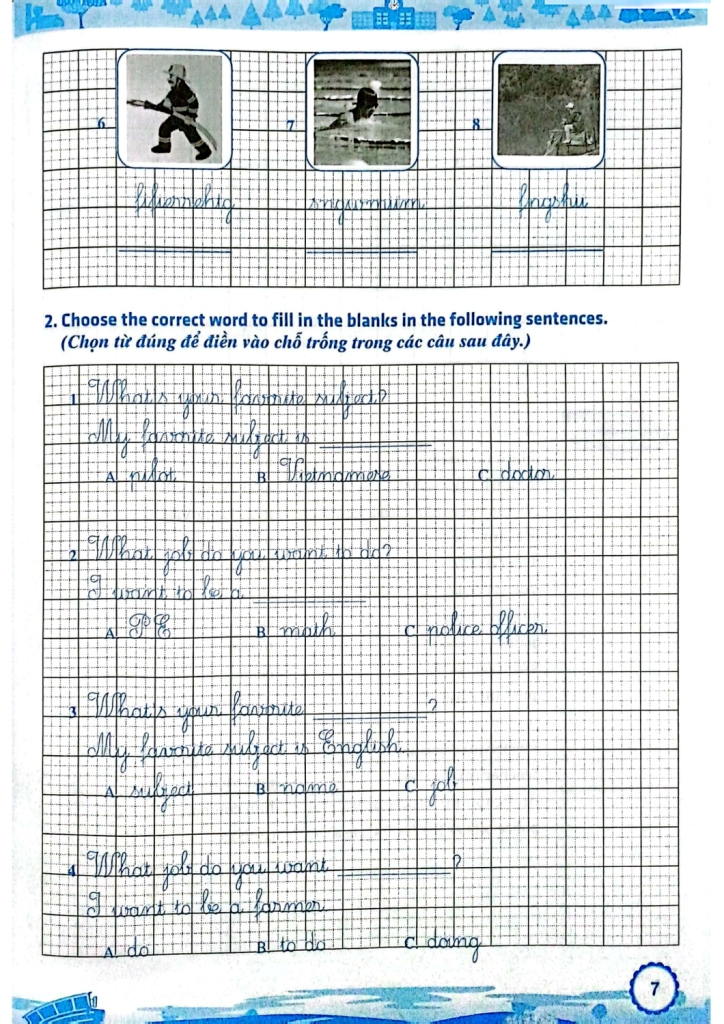 6 7 8
fifierrehig snguimmim fingshii
2. Choose the correct word to fill in the blanks in the following sentences.
(Chọn từ đúng để điền vào chỗ trống trong các câu sau đây.)
1 What's your favorite subject?
My favorite subject is
A. pilot B. Vietnamese C. doctor
2 What job do you want to do?
I want to be a
A. PE B. math C. police officer
3 What's your favorite ?
My favorite subject is English.
A. subject B. name C. job
4 What job do you want ?
I want to be a farmer.
A. do B. to do C. doing
7